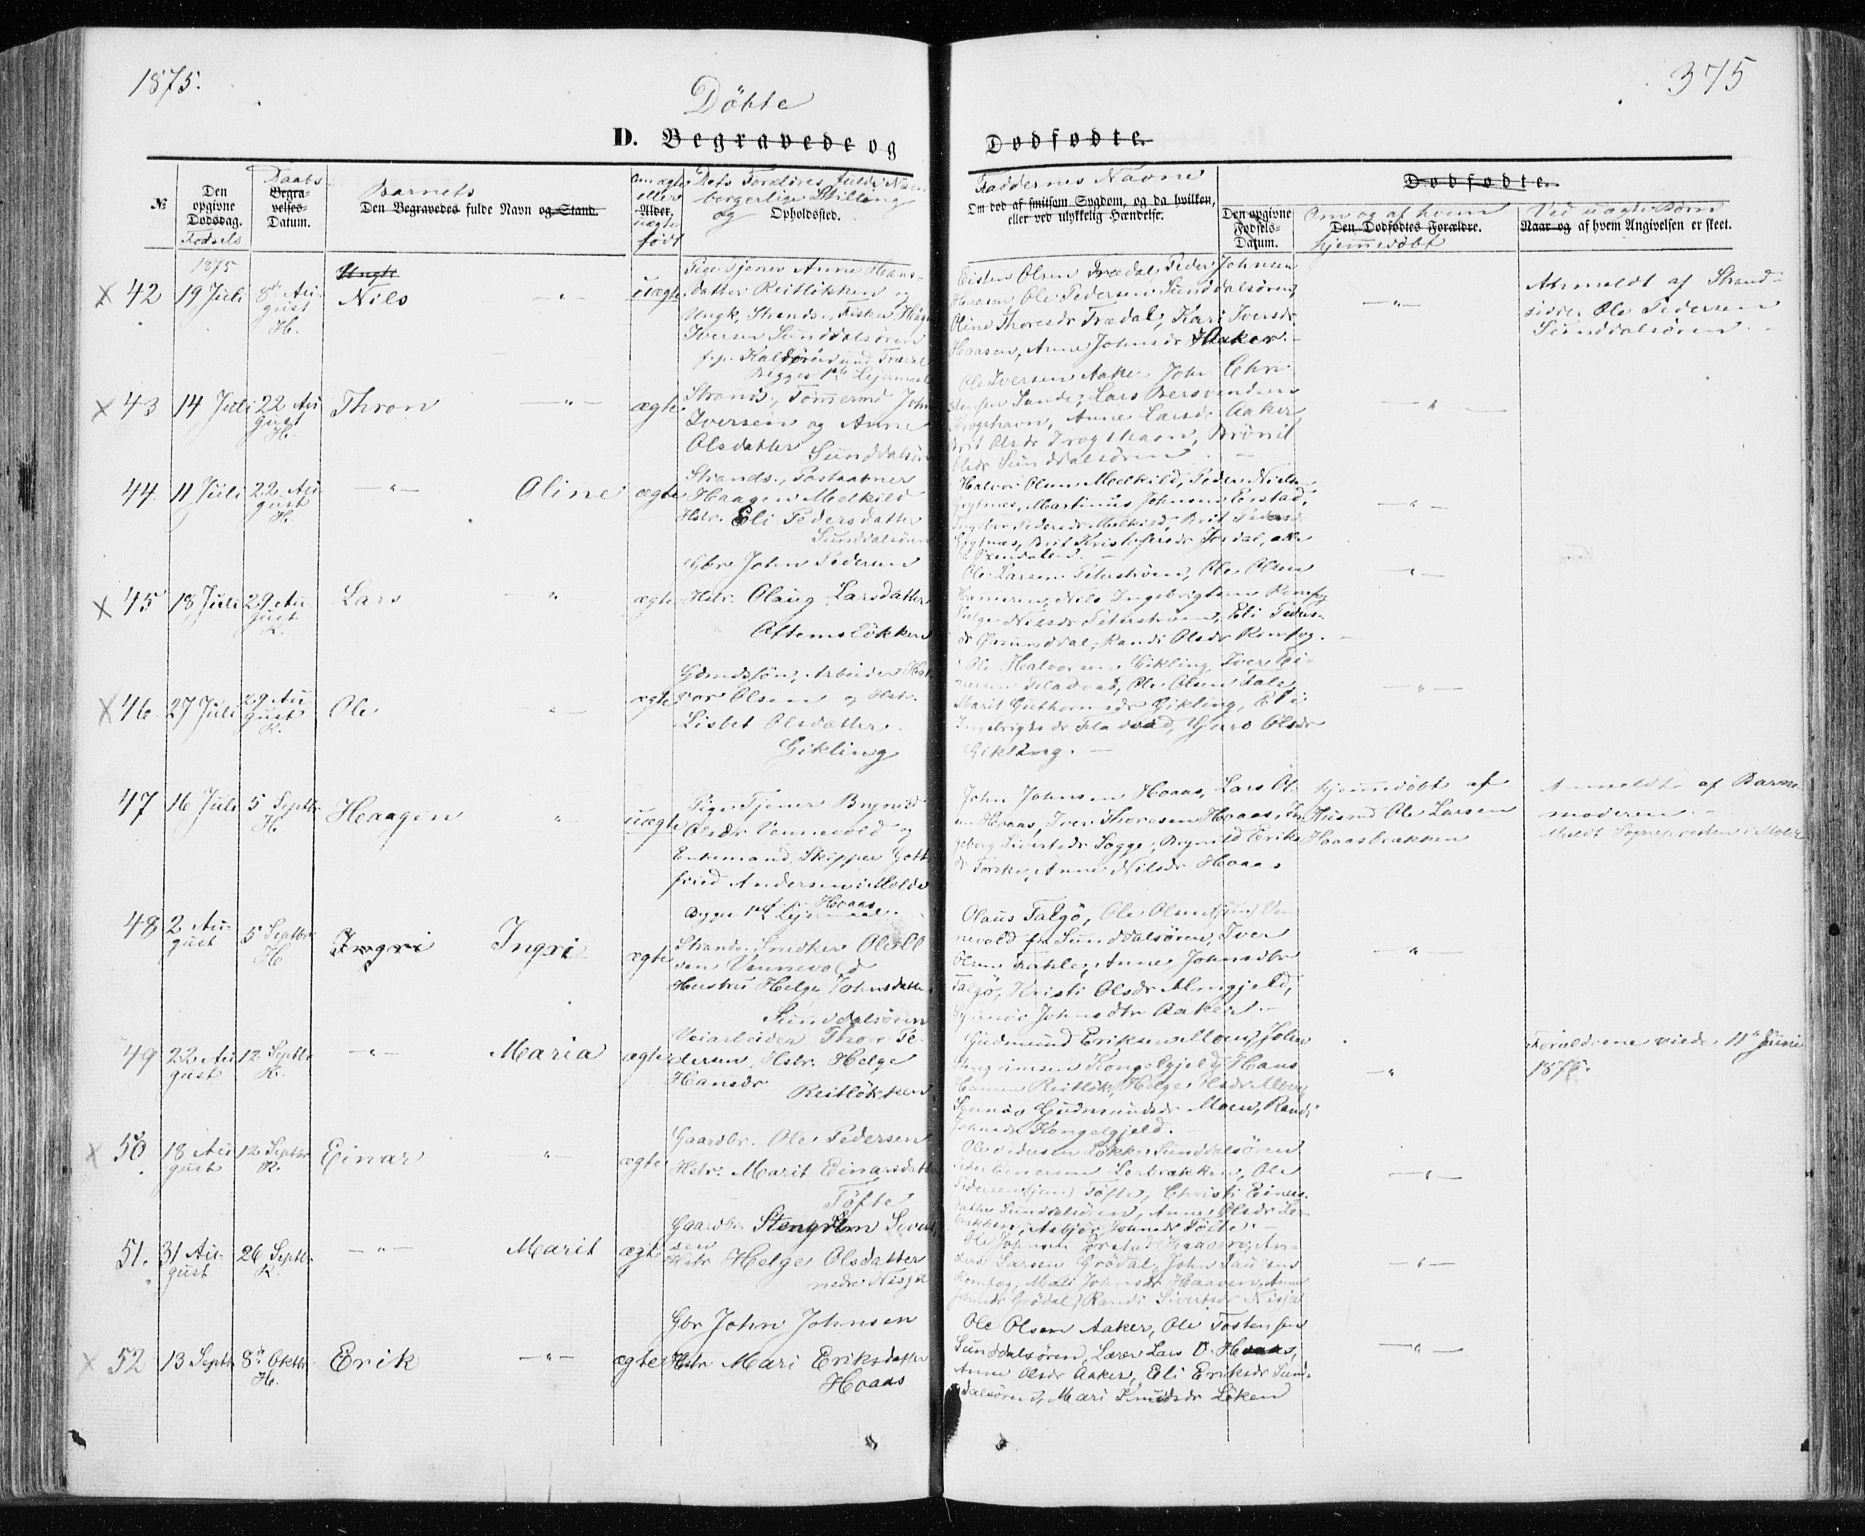 1875.
375
Döbte
D. Begravede og Dødfødte.
№
Den opgivne Dødsdag.
Fødsels
Daabs-
Begra-velses-Datum.
Barnets
Den Begravedes fulde Navn og Stand.
Om ægte eller uægte født
Alder.
Dets Forældres fulde Navn
borgerlige Stilling
og Opholdssted.
Faddernes Navne
Om død af smitsom Sygdom, og da hvilken,
eller ved ulykkelig Hændelse.
Dødfødte.
Den opgivne Fødsels-Datum.
Om og af hvem
Den Dødfødtes Forældre.
hjemmedöbt
Ved uægte Børn
Naar og af hvem Angivelsen er skeet.
1875
42 19 Juli 8de August H. Nils uægte
Pige Tjener Anne Hans-
datter Reitlökken og
Ungk. Strands. Fisker
Iversen Sunddalsören
Eisten Olsen Trædal, Peder Johnsen
Hoaasen, Ole Pedersen Sunddalsören,
Oline Thoresdr Trædal, Kari Iversdr
Hoaasen, Anne Johnsdr
Anmeldt af Strand-
sidder Ole Pedersen
Sunddalsören.
43 14 Juli 22 August H. Thron ægte
Strands., Tömmermd John
Iversen og Anne
Olsdatter Sunddalsören
Ole Iversen Aaker, John Chri-
stensen Sande, Lars Bersvendsen
Trogshavn, Anne Larsdr Aaker
Brit Olsdr Trogshavn, Brönil
Olsdr Sunddalsören
44. 11 Juli 22 August H. Oline ægte
Strands., Postaabner
Haagen Melkild
Hstr. Eli Pedersdatter
Sunddalsören
Halvor Olsen Melkild, Peder Niels-
Grytnes, Martinus Johnsen Erstad,
Ingebor Pedersdr Melkild, Brit Pedersd
Grytnæs, Brit Kristofersdr Jordal, alle
Öxendalen.
45 18 Juli 29 August K. Lars ægte
Gbr John Pedersen
Hstr. Olaug Larsdatter
Aftemslökken
Ole Larsen, Ole Olsen
Hammeren, Nils Ingebrigtsen Romfog
Helge Nilsdr, Eli Peders-
dr Grunddal, Randi Olsdr Romfog.
46. 27 Juli 29 August K. Ole ægte
Gdmdssön, Arbeider
Olsen og Hstr.
Lisbet Olsdatter
Gikling
Ole Halvorsen Gikling, Iver
Fladvad, Ole Olsen Fale,
Marit Guthormsdr Gikling, Eli
Ingebrigtsdr Fladvad, Guro Olsdr
Gikling.
47 16 Juli 5 Septbr H. Haagen uægte
Pige Tjener Brynild
Olsdr Vennevold og
Enkemand Skipper Gott-
fried Andersen i Molde
f. p. Hoaas
Begges 1ste Lejermaal.
John Johnsen Hoaas, Lars Ol-
sen Hoaas, Iver Thoresen Hoaas, In-
geborg Sivertsdr Sogge, Brynild Eriks-
dr Torske, Anne Nilsdr Hoaas
Hjemmedöbt af
Husmd Ole Larsen
Hoaasbakken
Anmeldt af Barne-
moderen.
Meldt Sognepresten i Molde
48 2 August 5 Septbr H. Ingri Ingri ægte
Strands., Snedker Ole Ol-
sen Vennevold
Hustru Helge Johnsdatter
Sunddalsören
Olaus Talgö, Ole Olsen (jun) Ven-
nevold fr Sunddalsören, Iver
Olsen Fahle, Anne Johnsdtr
Talgö, Kristi Olsdr Almgjeld,
Synnöv Johnsdtr Aaker
49 22 August 12 Septbr K. Maria ægte
Veiarbeider Thore Pe-
dersen, Hstr. Helge
Hansdr
Reitlökken
Gudmund Eriksen Moen, John
Kongelgjeld, Hans
Hansen Reitlök, Helge Olsdr Moen,
Synnöv Gudmundsdr Moen, Randi
Johnsdr Kongelgjeld.
Forældrene viede 11te Juni
1875.
50 18 August 12 Septbr K. Einar ægte
Gaardbr. Ole Pedersen
Hstr. Marit Einarsdatter
Töfte
Ole Pedersen Lökke Sunddalsören
Peder Einersen Lerbakken, Ole
Pedersen (jun) Töfte, Christi Einers-
datter Sunddalsören, Anne Olsdr Ler-
bakken, Asbjör Johnsdr Töfte.
51. 31 August 26 Septbr K. Marit ægte
Gaardbr. Stengrim Sivert-
sen
Hstr Helge Olsdatter
nedre Nisja
Ole Johnsen Hoaaven, An-
ders Larsen Grödal, John Paulsen
Romfog, Mali Johnsdr Haaven, Anne
Johnsdr Grödal, Randi Sivertsdr Nisja
52 13 Septb 8de Oktbr H. Erik ægte
Gbr John Johnsen
Hstr Mari Eriksdatter
Hoaas
Ole Olsen Aaker, Ole Tostensen
Sunddalsören, Lærer Lars O. Hoaas,
Anne Olsdr Aaker, Eli Eriksdr Sun-
dalsören, Mari Knudsdr Löken